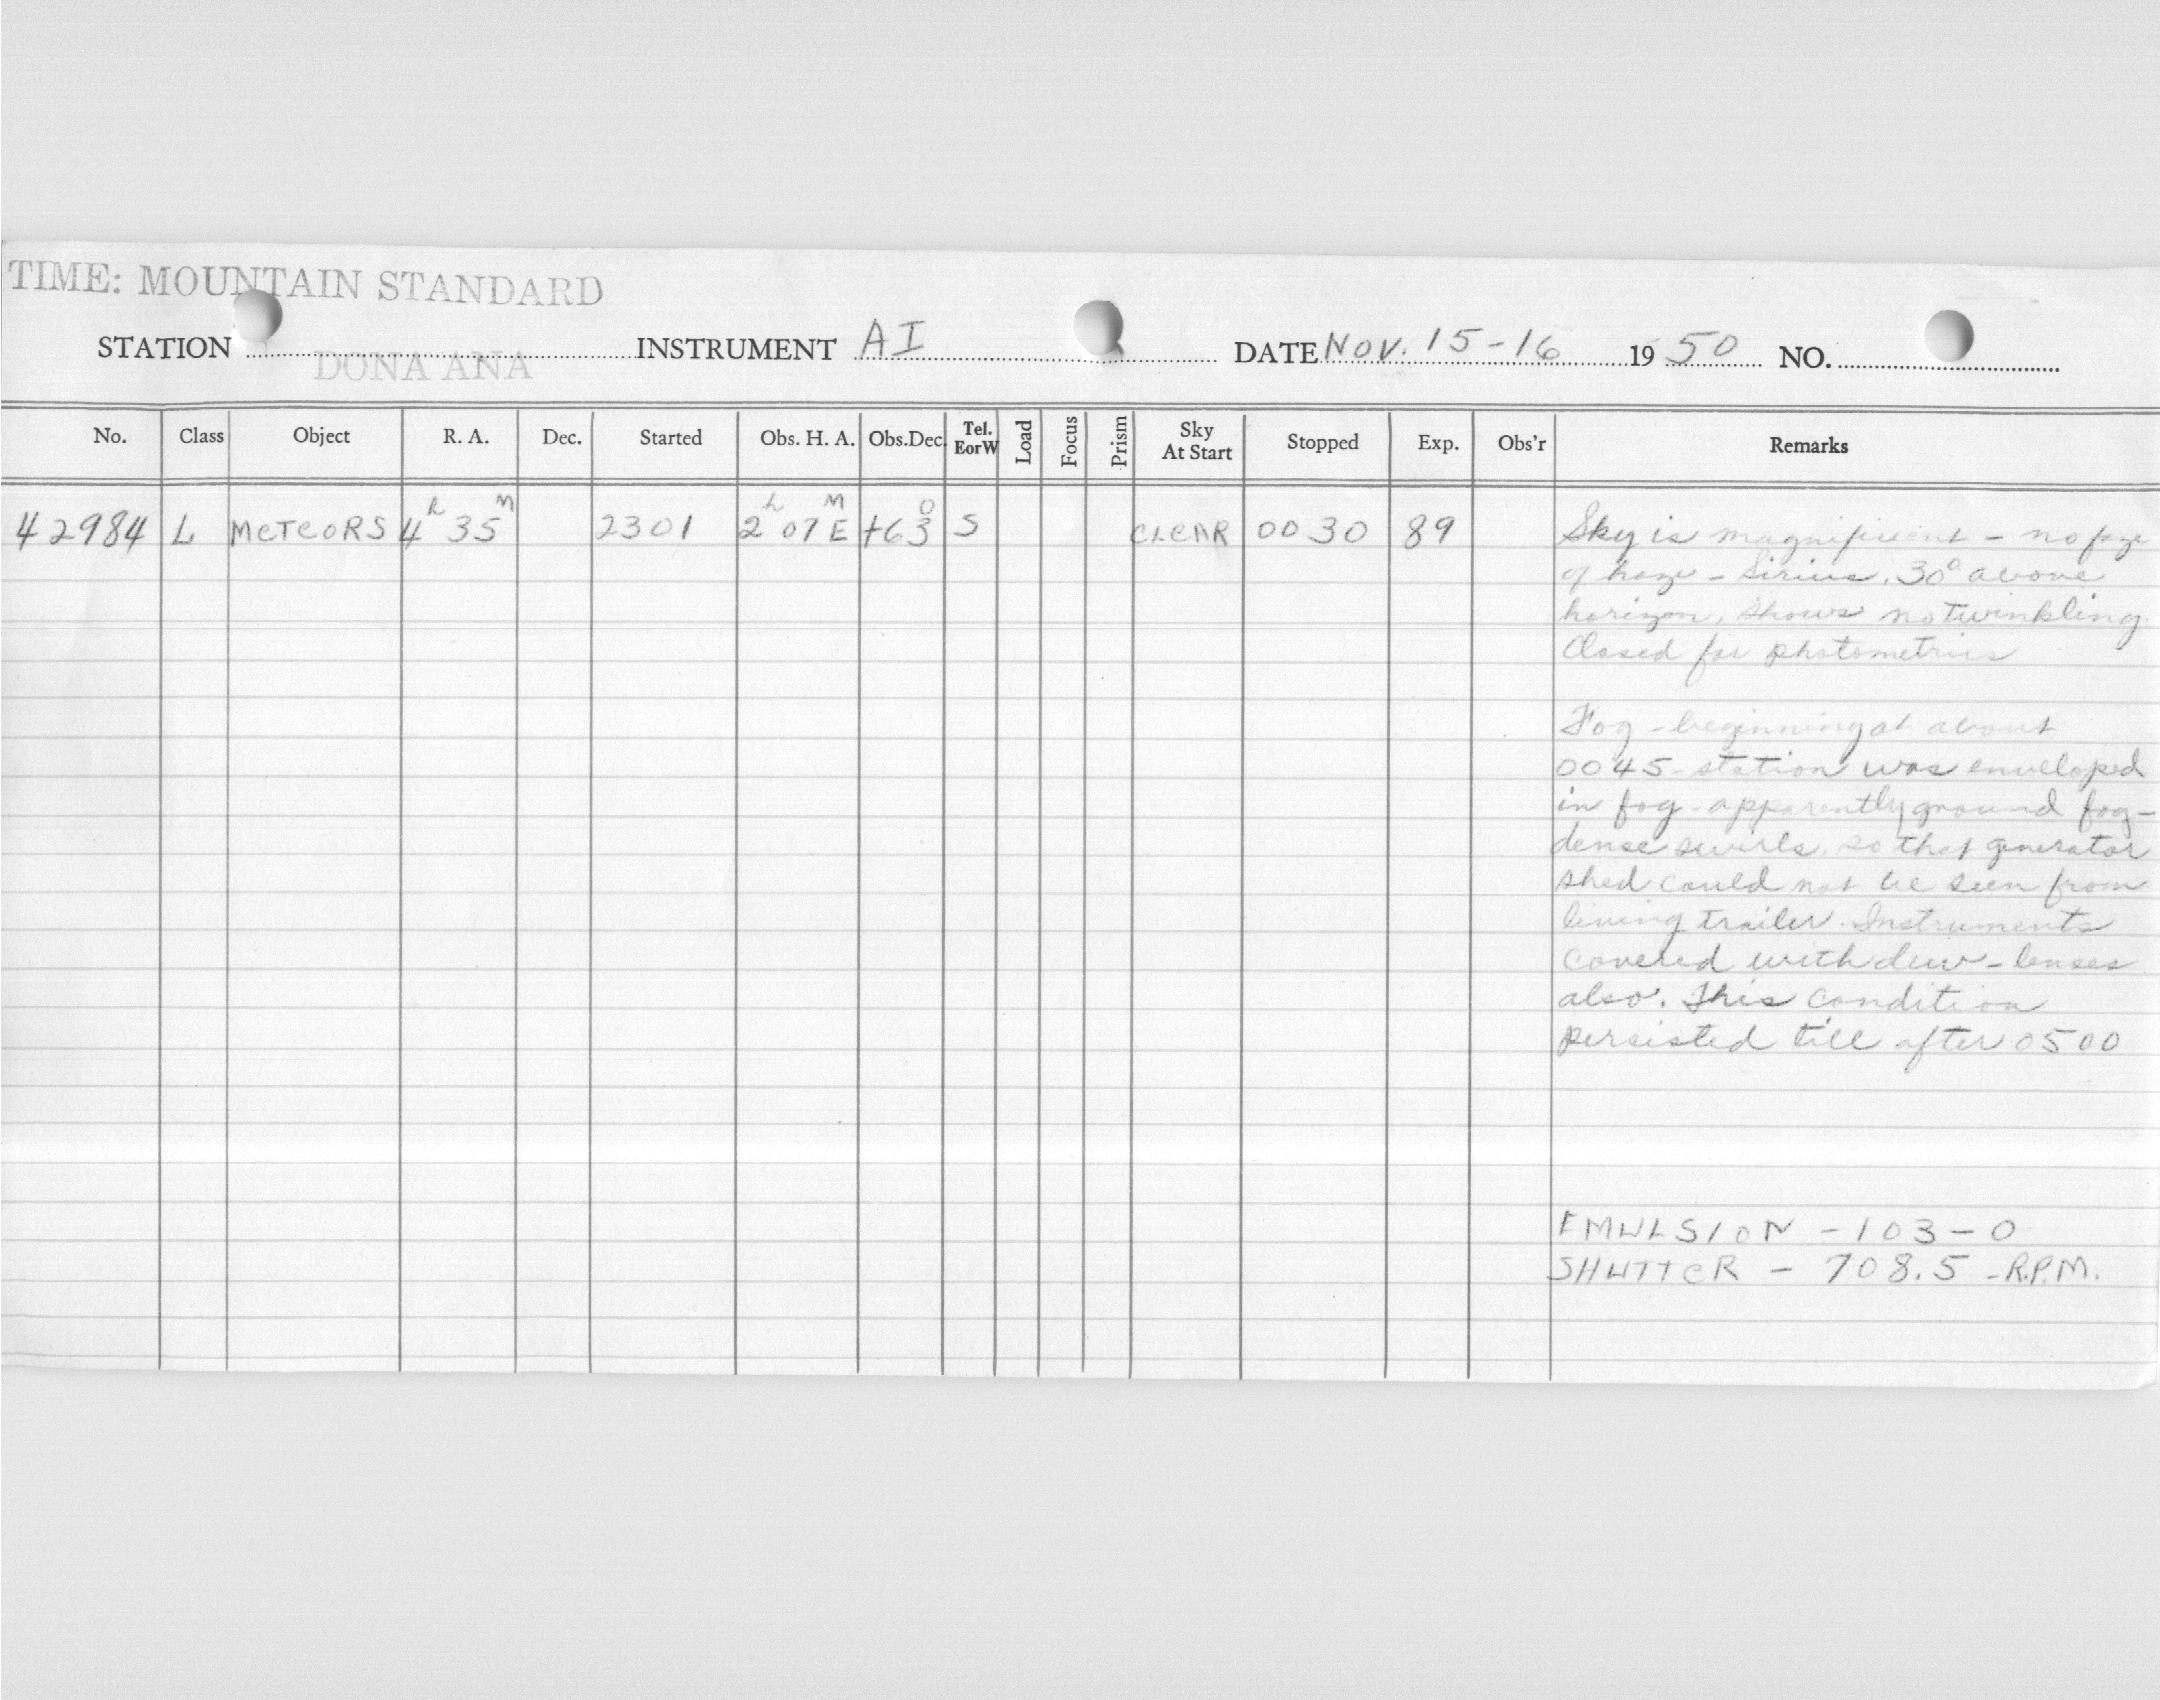 TIME: MOUNTAIN STANDARD
STATION DONA ANA INSTRUMENT AI DATE NOV. 15-16 1950 NO.
No. Class Object R. A. Dec. Started Obs. H. A. Obs.Dec. Tel. EorW Load Focus Prism Sky At Start Stopped Exp. Obs'r Remarks
42984 L METEORS 4h 35m 2301 2h 07m E +63° S CLEAR 0030 89 Sky is magnificent - no
of haze - Sirius, 30° above
horizon, shows no twinkling.
Closed for photometrics
Fog - beginning at about
0045 - station was enveloped
in fog - apparently ground fog -
dense swirls, so that generator
shed could not be seen from
living trailer. Instruments
covered with dew - lenses
also. This condition
persisted till after 0500
EMULSION - 103-0
SHUTTER - 708.5 - R.P.M.